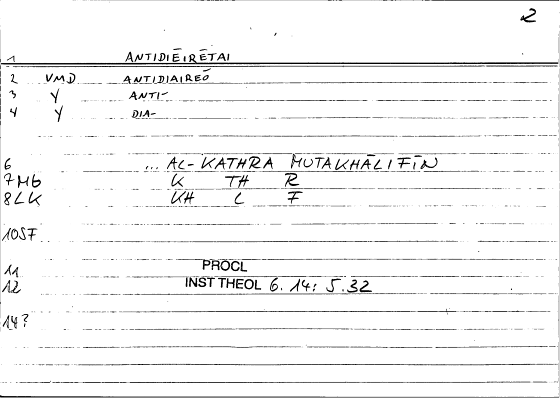 2
1 ANTIDIĒIRĒTAI
2 VMD ANTIDIAIREŌ
3 Y ANTI-
4 Y DIA-
6 ... AL-KATHRA MUTAKHĀLIFĪN
7 Mb K TH R
8 LK KH L F
10 SF
11 PROCL
12 INST THEOL 6. 14: 5.32
14 ?